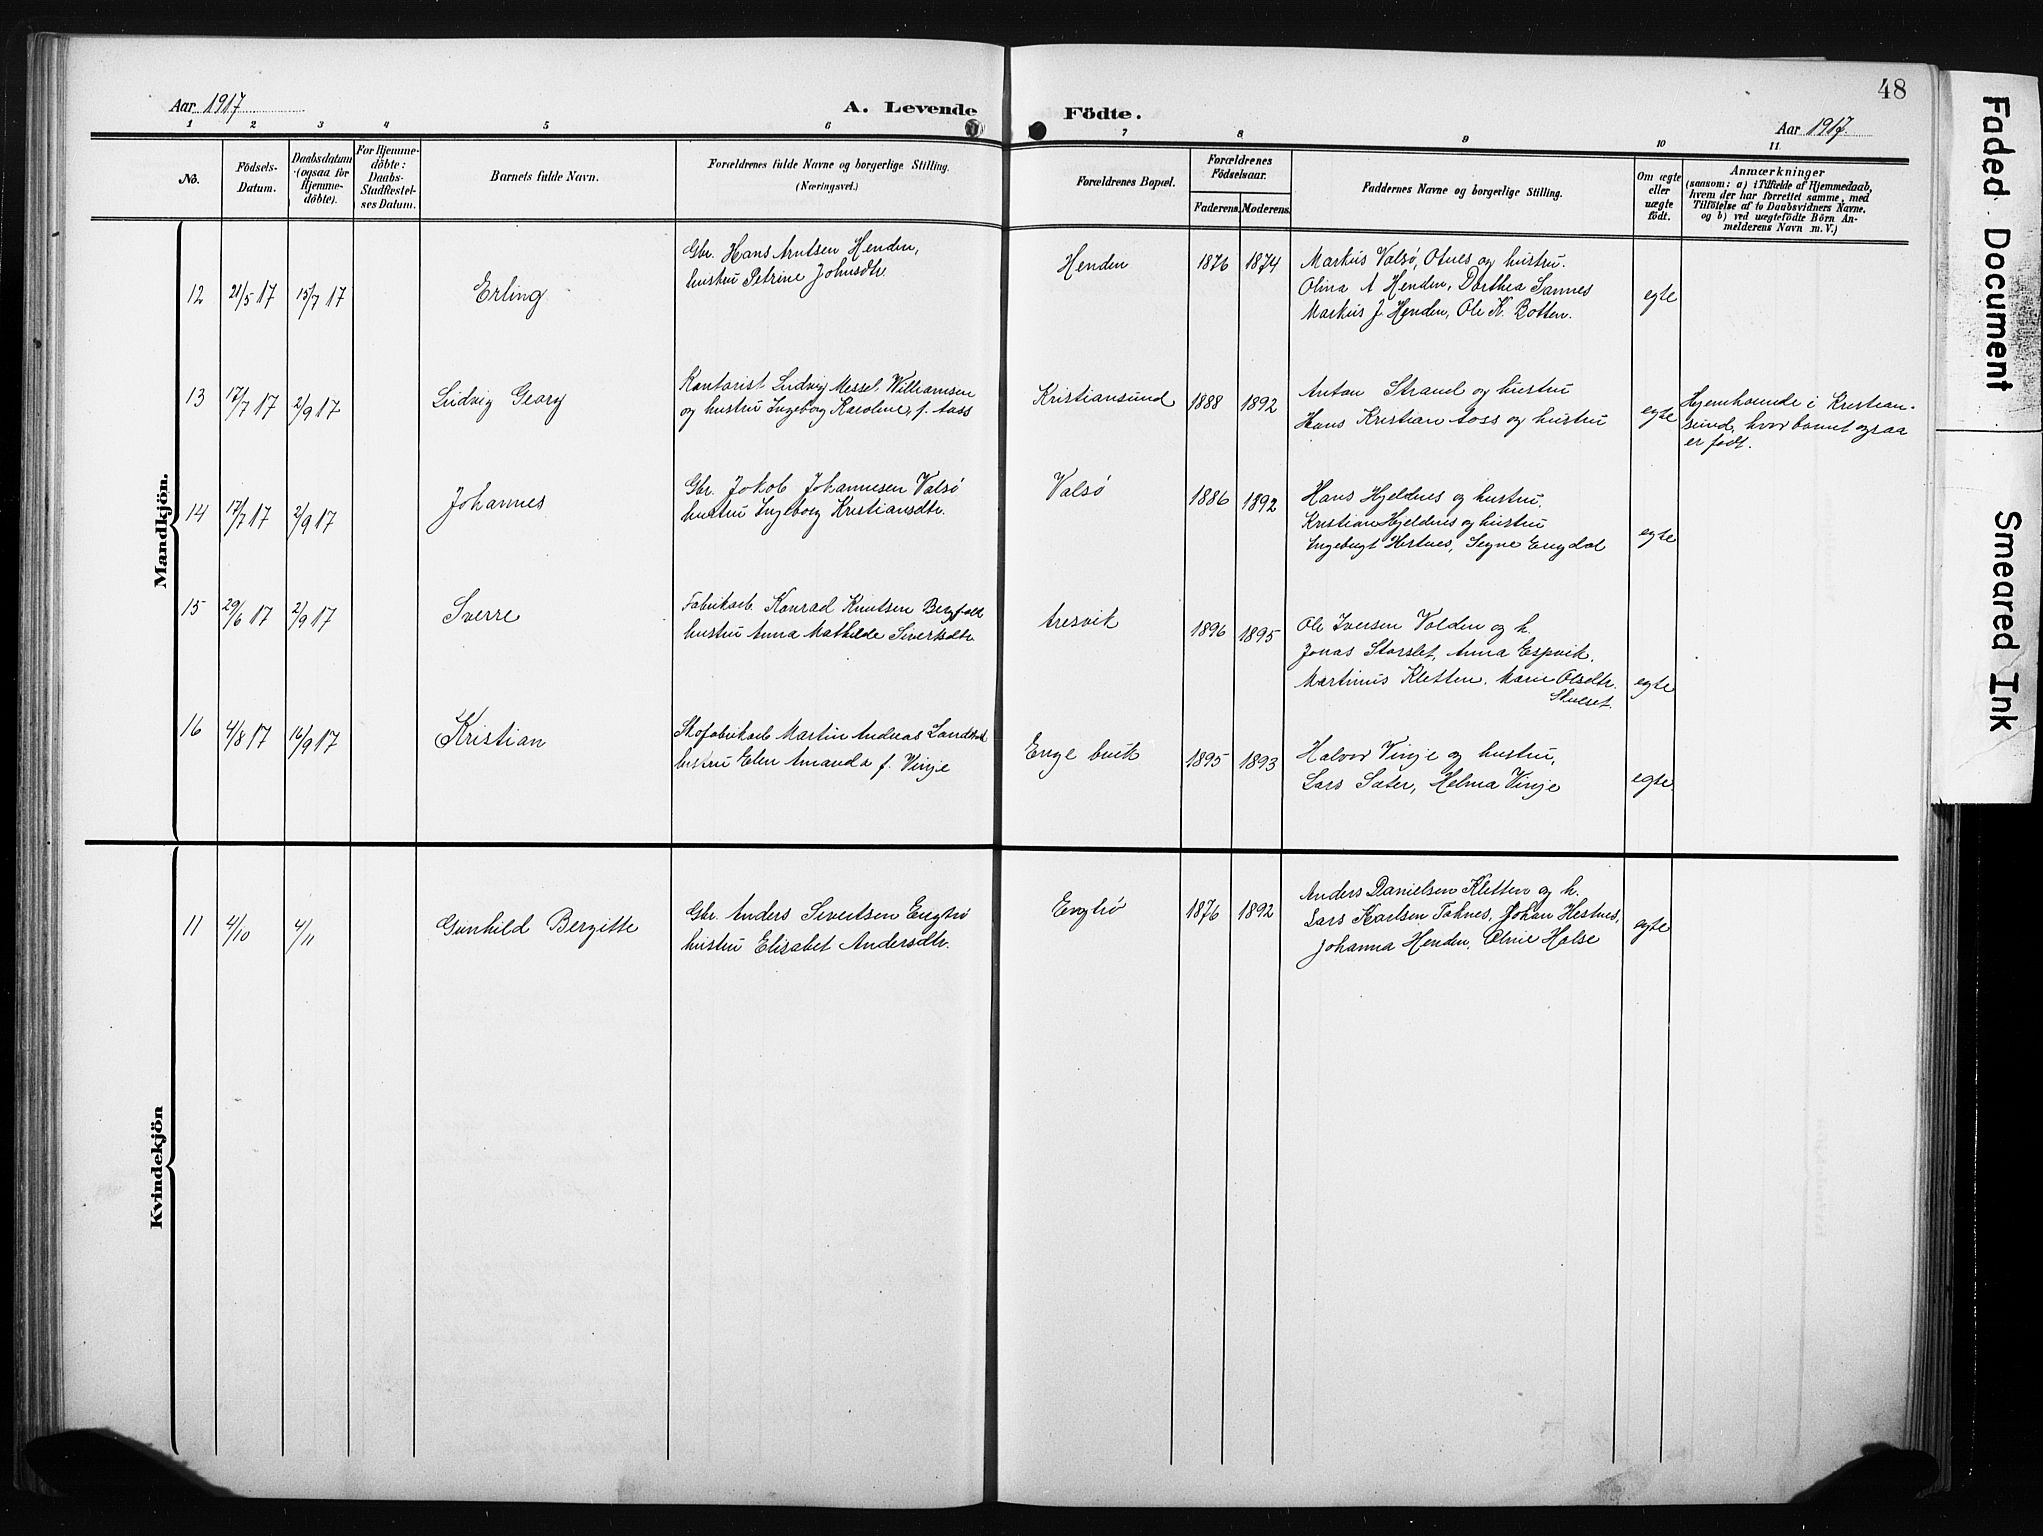 48
Aar 1917
A. Levende
Födte.
Aar 1917
1 2 3 4 5 6 7 8 9 10 11
No.
Födsels-
Datum.
Daabsdatum
(ogsaa for
Hjemme-
döbte).
For Hjemme-
döbte:
Daabs-
Stadfæstel-
ses Datum.
Barnets fulde Navn.
Forældrenes fulde Navne og borgerlige Stilling.
(Næringsvei.)
Forældrenes Bopæl.
Forældrenes
Födselsaar.
Faderens.
Moderens.
Faddernes Navne og borgerlige Stilling.
Om ægte
eller
uægte
födt.
Anmærkninger
(saasom: a) i Tilfælde af Hjemmedaab,
hvem der har forrettet samme, med
Tilföielse af to Daabsvidners Navne.
og b) ved uægtefödte Börn An-
melderens Navn m. V.)
Mandkjön.
12 21/5 17 15/7 17 Erling
Gbr. Hans Arntsen Henden,
hustru Petrine Johnsdtr.
Henden 1876 1874
Markus Valsø, Otnes og hustru.
Olina A Henden, Dorthea Sannes
Markus J Henden, Ole K. Botten.
egte
13 17/7 17 2/9 17 Ludvig Georg
Kontorist Ludvig Messel Williamsen
og hustru Ingeborg Karoline, f. Aass
Kristiansund 1888 1892
Anton Strand og hustru
Hans Kristian Aass og hustru
egte
Hjemhørende i Kristian-
sund, hvor barnet ogsaa
er født.
14 17/7 17 2/9 17 Johannes
Gbr. Jokob Johannesen Valsø
hustru Ingeborg Kristiansdtr.
Valsø 1886 1892
Hans Hjeldnes og hustru.
Kristian Hjeldnes og hustru
Ingebrigt Hestnes, Signe Engdal
egte
15 29/6 17 2/9 17 Sverre
Fabrikarb. Konrad Knutsen Bergfald
hustru Anna Mathilde Sivertsdtr.
Aresvik 1896 1895
Ole Iversen Volden og h.
Jonas Storslet, Anna Espvik.
Martinus Kletten, Marie Olsdtr.
Skulset.
egte
16 4/8 17 16/9 17 Kristian
Skofabrikarb Martin Andreas
hustru Elen Amanda f. Vinje
1895 1893
Halvor Vinje og hustru,
Lars Sæter, Helma Vinje
egte
Kvindekjön
11 4/10 4/11 Gunhild Bergitte
Gbr. Anders Sivertsen Engsø
hustru Elisabet Andersdtr.
Engsø 1876 1892
Anders Danielsen Kletten og h.
Lars Karlsen Taknes, Johan Hestnes,
Johanna Henden, Halse
egte
Faded Document
Smeared Ink